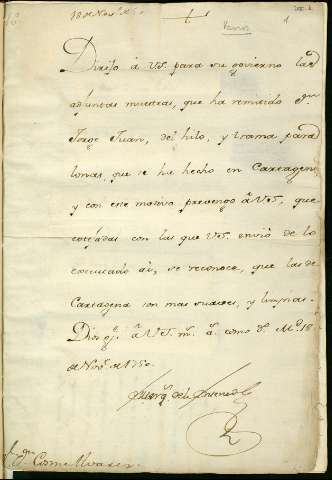 Varios
1
Dirijo à VS. para su govierno las
adjuntas muestras, que ha remitido Dn.
Jorge Juan, del hilo, y trama para
lonas, que se ha hecho en Cartagena
y con este motivo prevengo â VS, que
cotejadas con las que VS. envió de lo
executado ai, se reconoce, que las de
Cartagena son mas suaves, y limpias.
Dios ge. â VS. ms. as. como deso. Md. 18
de Novre. de 1750.
El Marqs. de la Ensenada
Sr. Dn. Cosme Alvarez.